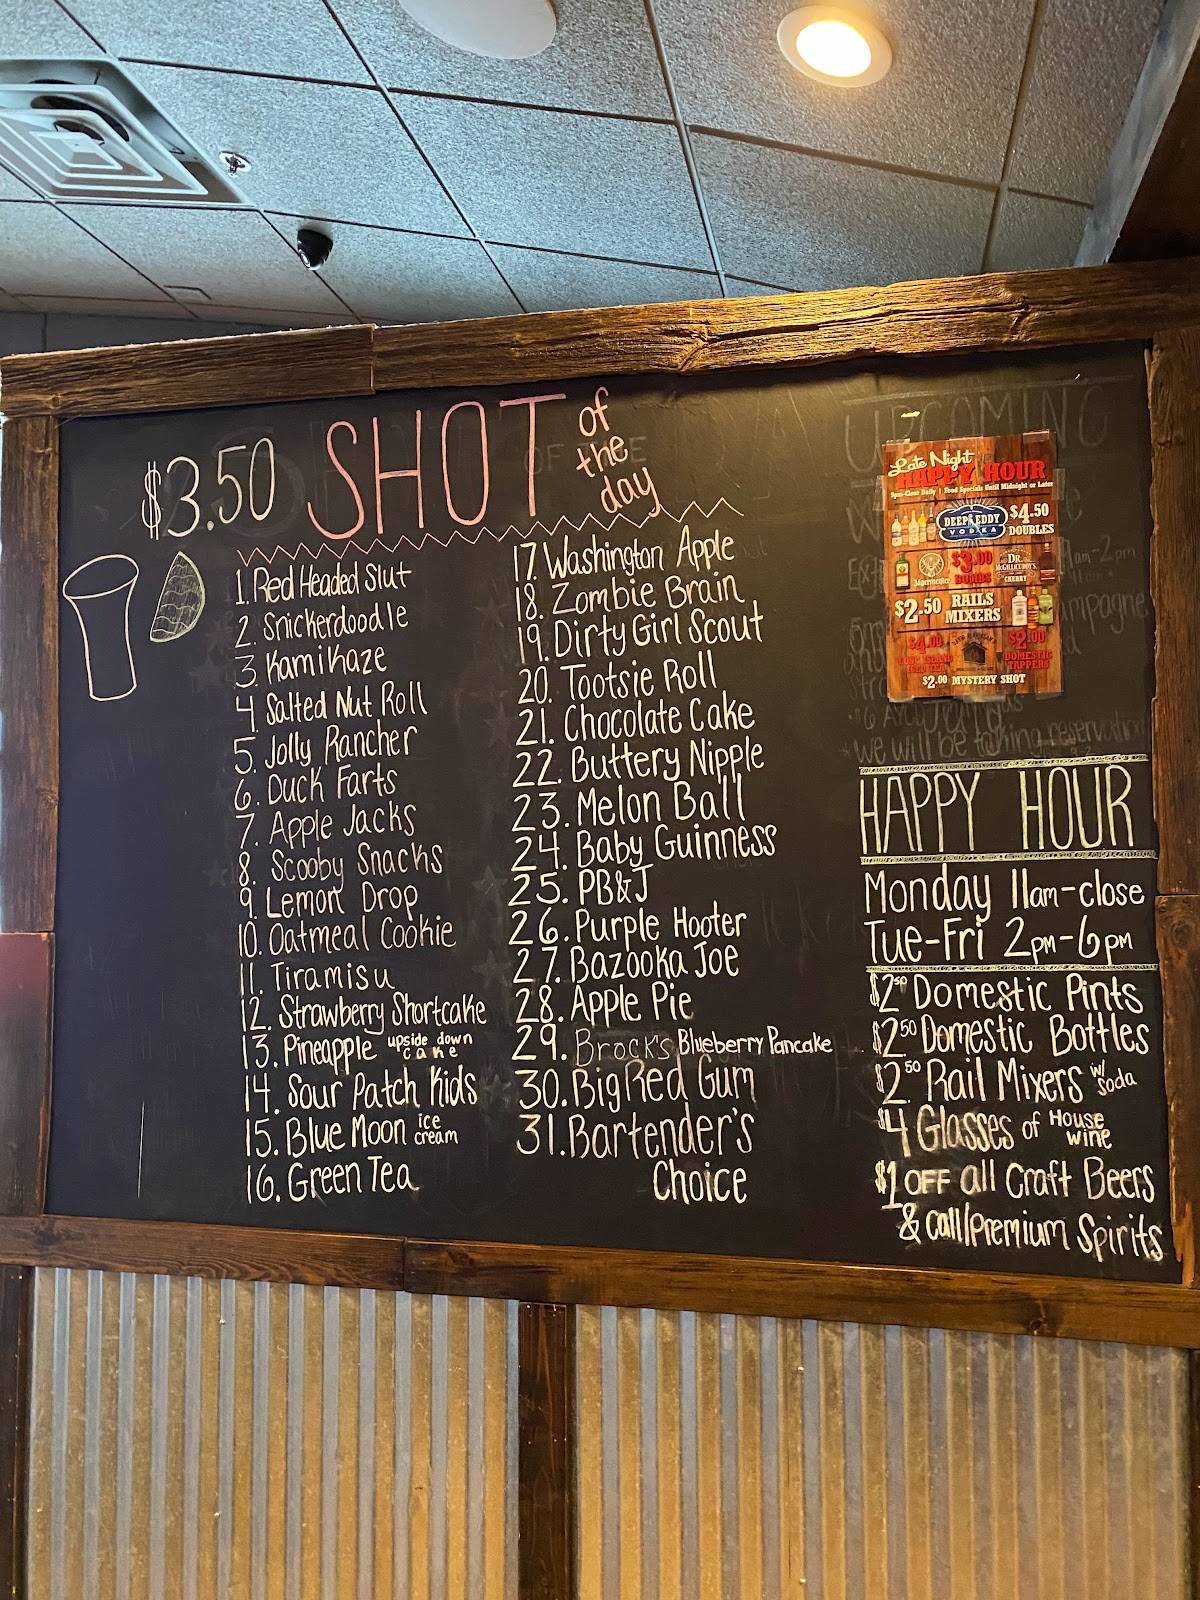 $3.50 SHOT of the day
1. Red Headed Slut
2. Snickerdoodle
3. Kamikaze
4. Salted Nut Roll
5. Jolly Rancher
6. Duck Farts
7. Apple Jacks
8. Scooby Snacks
9. Lemon Drop
10. Oatmeal Cookie
11. Tiramisu
12. Strawberry Shortcake
13. Pineapple upside down cake
14. Sour Patch Kids
15. Blue Moon ice cream
16. Green Tea
17. Washington Apple
18. Zombie Brain
19. Dirty Girl Scout
20. Tootsie Roll
21. Chocolate Cake
22. Buttery Nipple
23. Melon Ball
24. Baby Guinness
25. PB&J
26. Purple Hooter
27. Bazooka Joe
28. Apple Pie
29. Brock's Blueberry Pancake
30. Big Red Gum
31. Bartender's
Choice
UPCOMING
Late Night
HAPPY HOUR
9pm-Close Daily | Food Specials Until Midnight or Later
DEEP EDDY
VODKA
$4.50
DOUBLES
Jägermeister
$3.00
BOMBS
DR.
MCGILLICUDDY'S
CHERRY
$2.50 RAILS
MIXERS
$4.00
LONG ISLAND
$2.00
DOMESTIC
TAPPERS
$2.00 MYSTERY SHOT
we will be taking reservation
HAPPY HOUR
Monday 11am-close
Tue-Fri 2pm-6pm
$2.50 Domestic Pints
$2.50 Domestic Bottles
$2.50 Rail Mixers w/ Soda
$4 Glasses of House wine
$1 OFF all Craft Beers
& call/premium Spirits